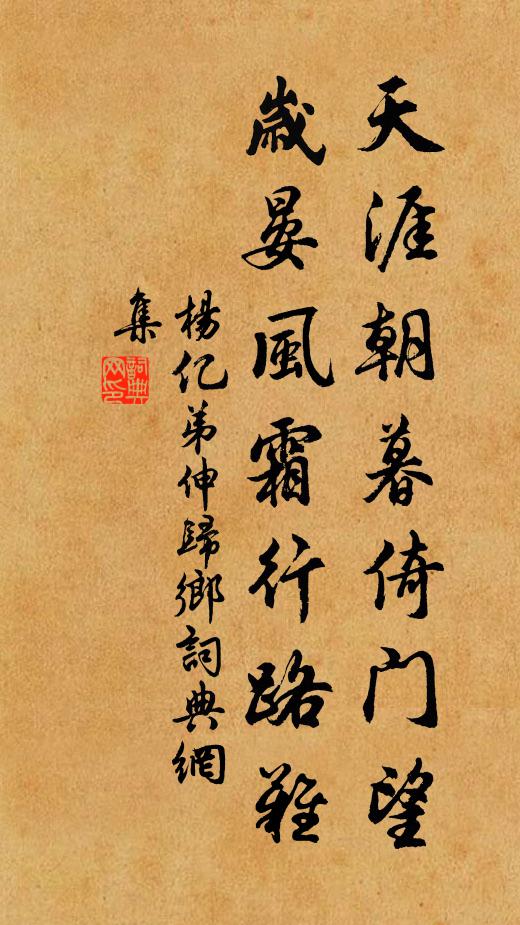 天涯朝暮倚门望
歲晏風霜行路難
楊亿弟伸歸鄉詞典網
集
詞典网印